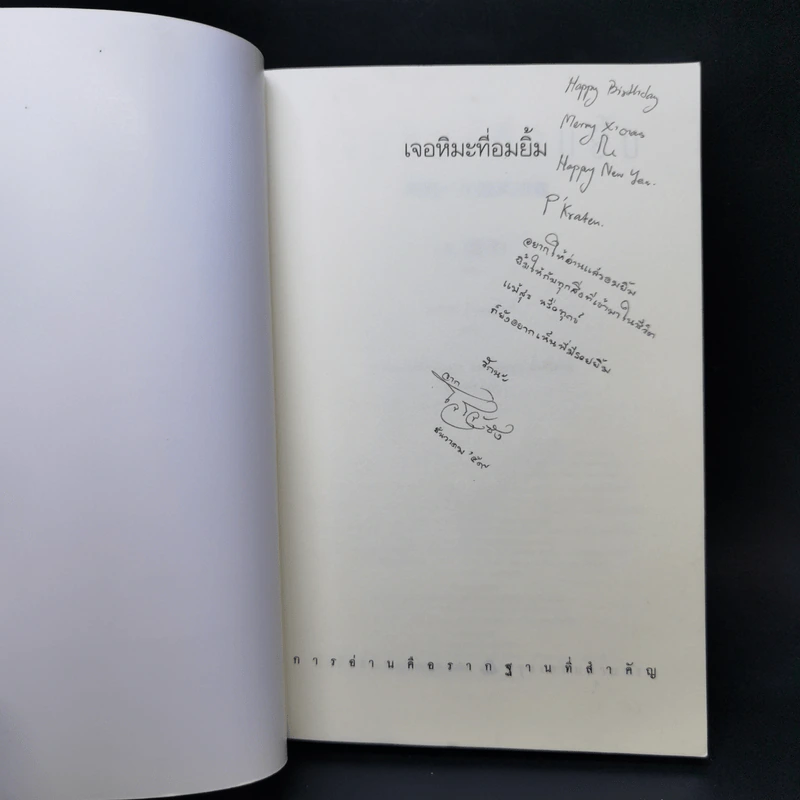 Happy Birthday
Merry X'mas
&
Happy New Year.
P'Kraten.
เจอหิมะที่อมยิ้ม
อยากให้อ่านแล้วอมยิ้ม
ยิ้มให้กับทุกสิ่งที่เข้ามาในชีวิต
แม้สุข หรือทุกข์
ก็ยังอยากเห็นพี่มีรอยยิ้ม
รักนะ
จาก
ธันวาคม '๕๙
การอ่านคือรากฐานที่สำคัญ